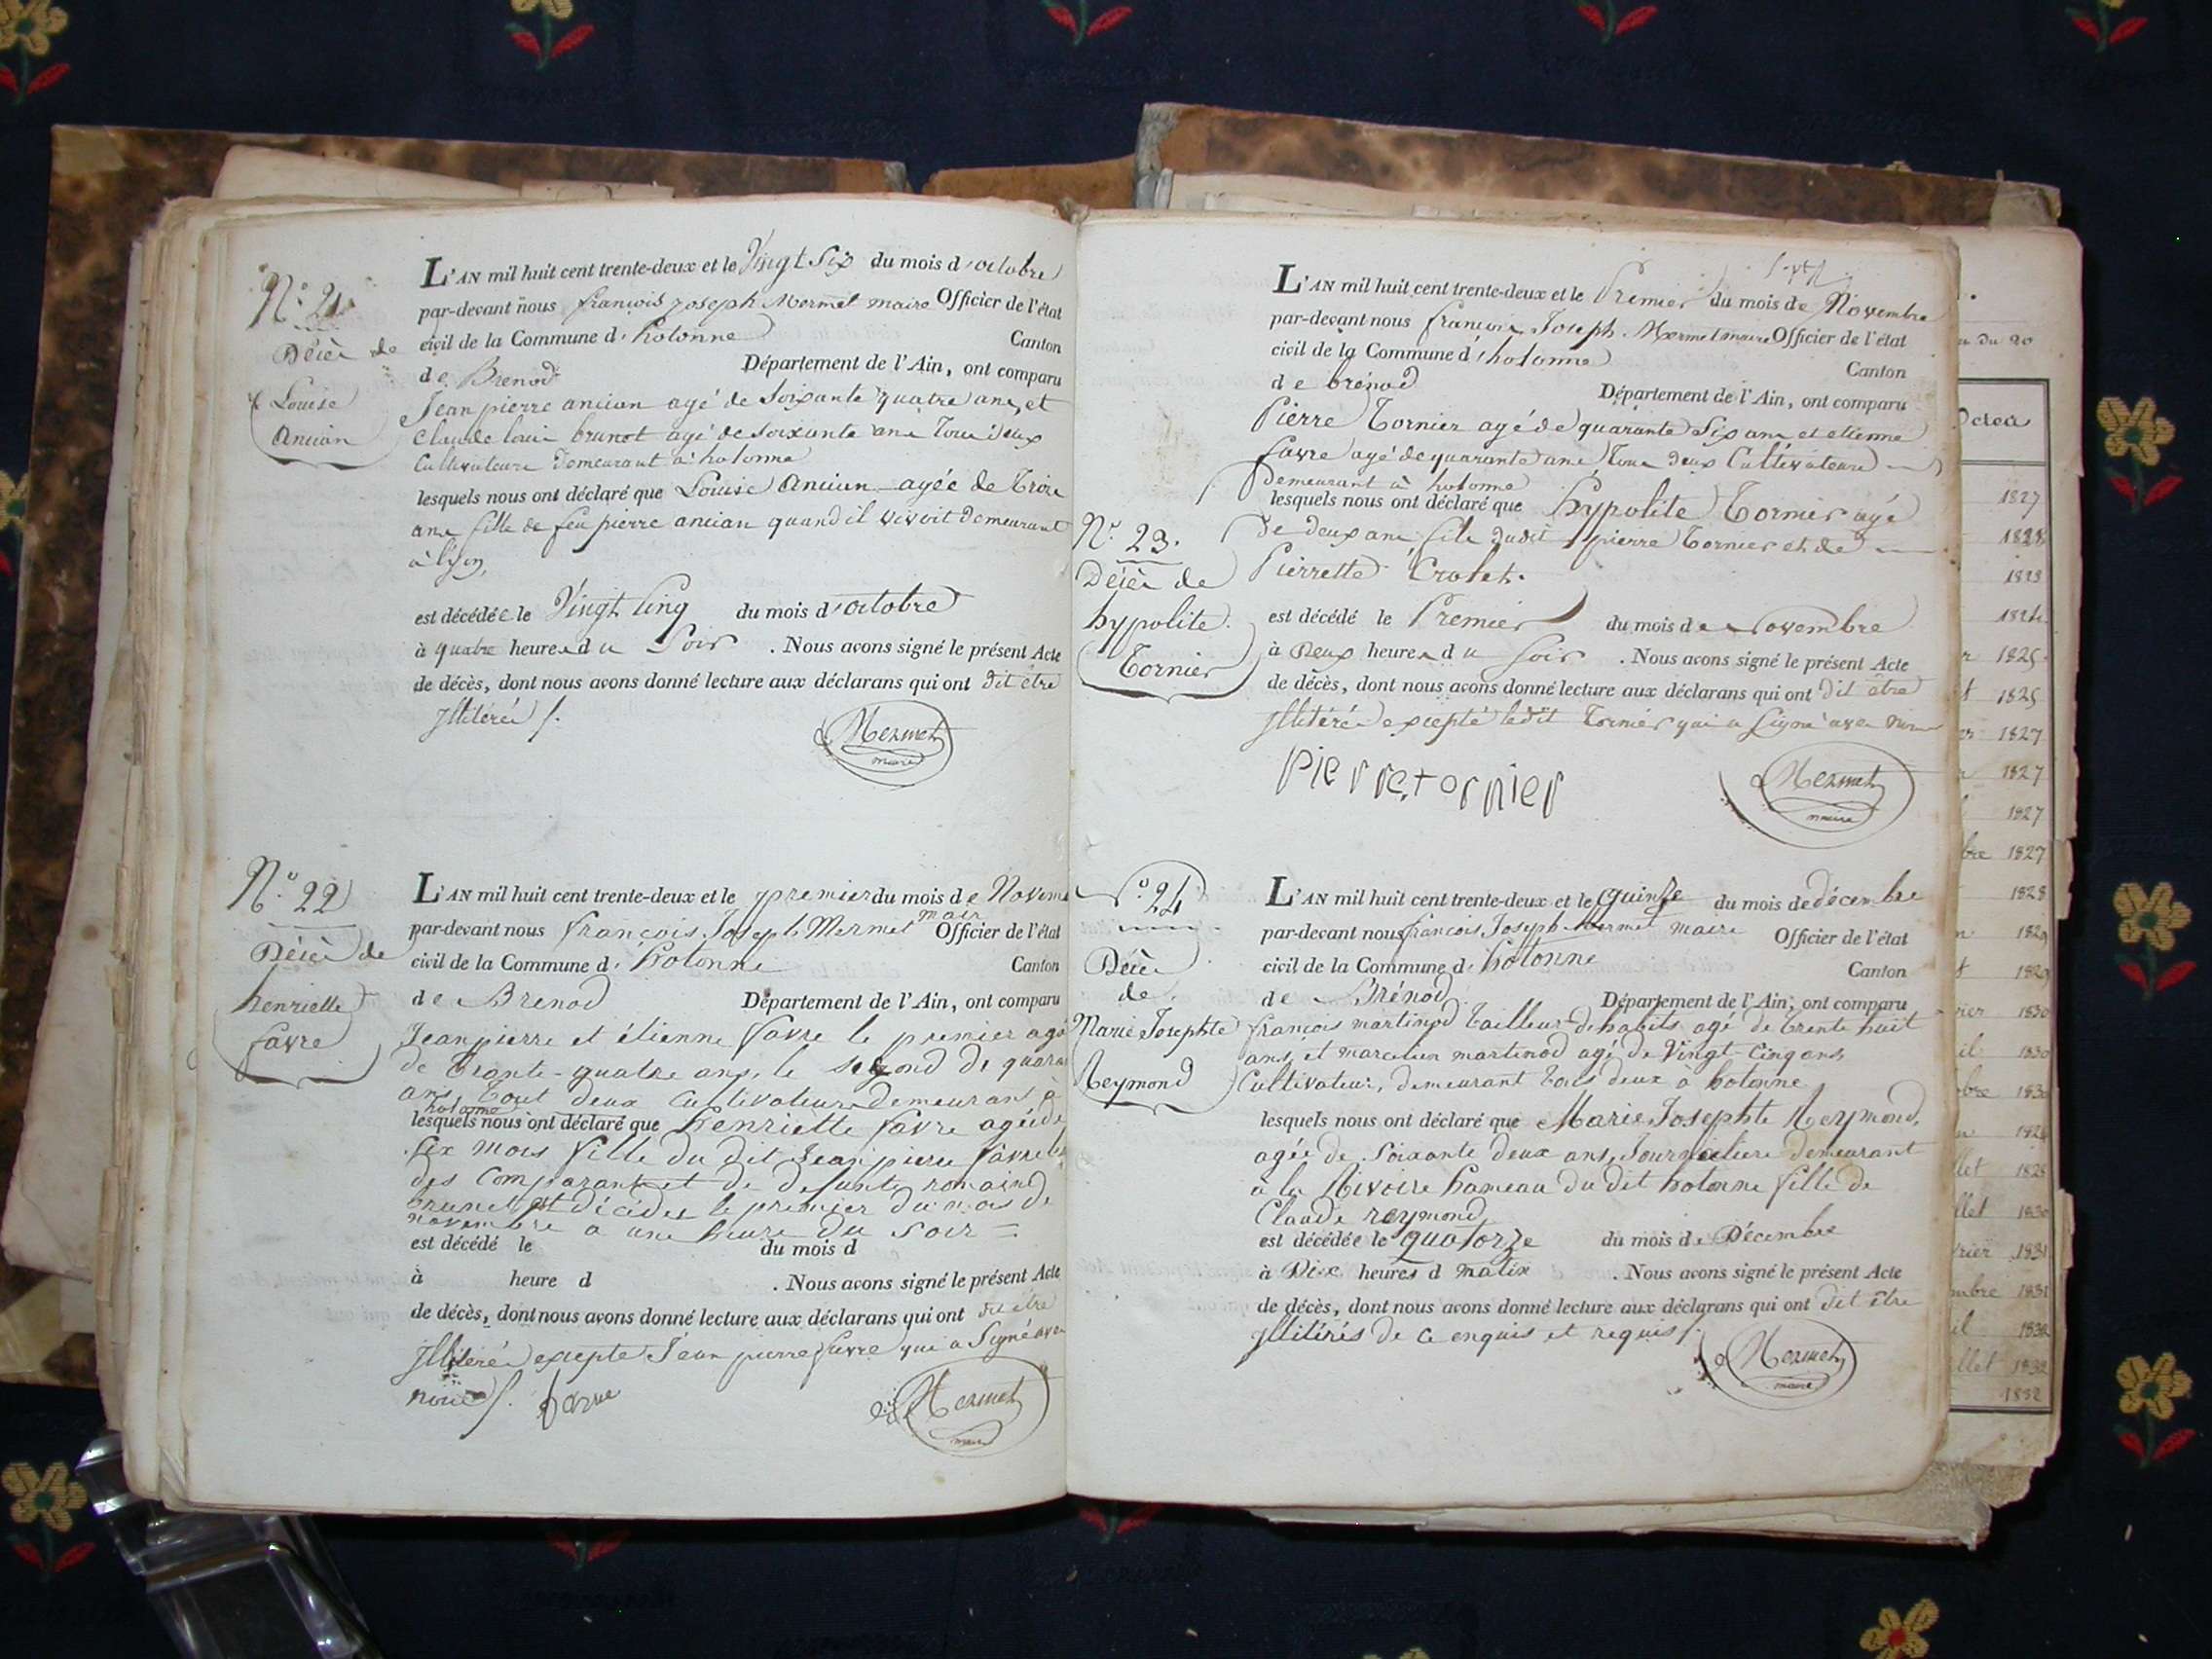 N.° 21
Décès de
Louise
Ancian
L'AN mil huit cent trente-deux et le Vingt Six du mois d'octobre
par-devant nous françois Joseph Mermet maire Officier de l'état
civil de la Commune d'hotonne Canton
de Brenod Département de l'Ain, ont comparu
Jean pierre ancian agé de Soixante quatre ans, et
Claude louis brunot agé de soixante ans Tous deux
Cultivateurs demeurant à hotonne
lesquels nous ont déclaré que Louise Ancian agée de Troize
ans fille de feu pierre ancian quand il vivoit demeurant
à lyon,
est décédée le Vingt Cinq du mois d'octobre
à quatre heures du Soir . Nous avons signé le présent Acte
de décès, dont nous avons donné lecture aux déclarans qui ont dit être
Illitérés /.
Mermet
maire
N.° 22
Décès de
henriette
favre
L'AN mil huit cent trente-deux et le premier du mois de Novem
maire
par-devant nous françois Joseph Mermet Officier de l'état
civil de la Commune d'hotonne Canton
de Brenod Département de l'Ain, ont comparu
Jean pierre et étienne favre le premier agé
de Trante-quatre ans, le segond de quara
ans Tout deux Cultivateurs demeurant à
hotonne
lesquels nous ont déclaré que henriette favre agée de
Six mois fille du dit Jean pierre favre
des Comparant et de defunte romaind
brunet est décédée le premier du mois de
novembre a une heure du Soir =
est décédé le du mois d
à heure d . Nous avons signé le présent Acte
de décès, dont nous avons donné lecture aux déclarans qui ont dit être
Illitérés excepté Jean pierre favre qui a Signé avec
nous /. favre
Mermet
maire
L'AN mil huit cent trente-deux et le Premier du mois de Novembre
par-devant nous françois Joseph Mermet maire Officier de l'état
civil de la Commune d'hotonne Canton
de brénod Département de l'Ain, ont comparu
Pierre Tornier agé de quarante Six ans et etienne
favre agé de quarante ans Tous deux Cultivateurs
Demeurant à hotonne
lesquels nous ont déclaré que hypolite Tornier agé
de deux ans fils dudit pierre Tornier et de
Pierrette Crolet.
N.° 23.
Décès de
hypolite
Tornier
est décédé le Premier du mois de Novembre
à Deux heures du Soir . Nous avons signé le présent Acte
de décès, dont nous avons donné lecture aux déclarans qui ont dit être
Illitérés excepté ledit Tornier qui a Signé avec nous
Pierre tornier
Mermet
maire
N.° 24
Décès
de
Marie Josephte
Reymond
L'AN mil huit cent trente-deux et le quinze du mois de décembre
par-devant nous françois Joseph Mermet maire Officier de l'état
civil de la Commune d'hotonne Canton
de Brénod Département de l'Ain, ont comparu
françois martinod Tailleur d'habits agé de trente huit
ans, et marcelin martinod agé de Vingt-Cinq ans
Cultivateur, demeurant tous deux à hotonne
lesquels nous ont déclaré que Marie Josephte Reymond,
agée de Soixante deux ans, Journaliere demeurant
à la Rivoire hameau du dit hotonne fille de
Claude reymond
est décédée le quatorze du mois de Décembre
à Dix heures d matin . Nous avons signé le présent Acte
de décès, dont nous avons donné lecture aux déclarans qui ont dit être
Illitérés de ce enquis et requis /.
Mermet
maire
du 20
1827
1828
1823
1824
1825
1825
1827
1827
1827
bre 1827
1828
1829
1829
rier 1830
il 1830
obre 1830
1828
llet 1828
llet 1830
vrier 1831
mbre 1831
il 1832
llet 1832
1832